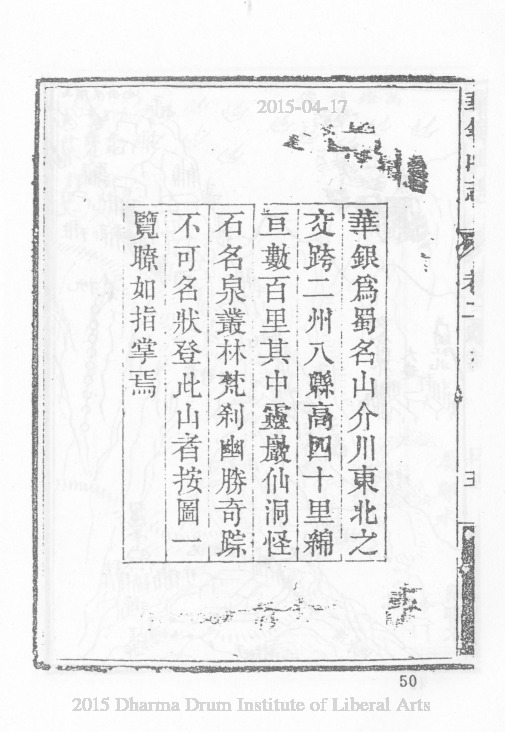 2015-04-17
華銀爲蜀名山介川東北之
交跨二州八縣高四十里綿
亘數百里其中靈巖仙洞怪
石名泉叢林梵刹幽勝奇踪
不可名狀登此山者按圖一
覽瞭如指掌焉
華銀山志
卷二
五
50
2015 Dharma Drum Institute of Liberal Arts